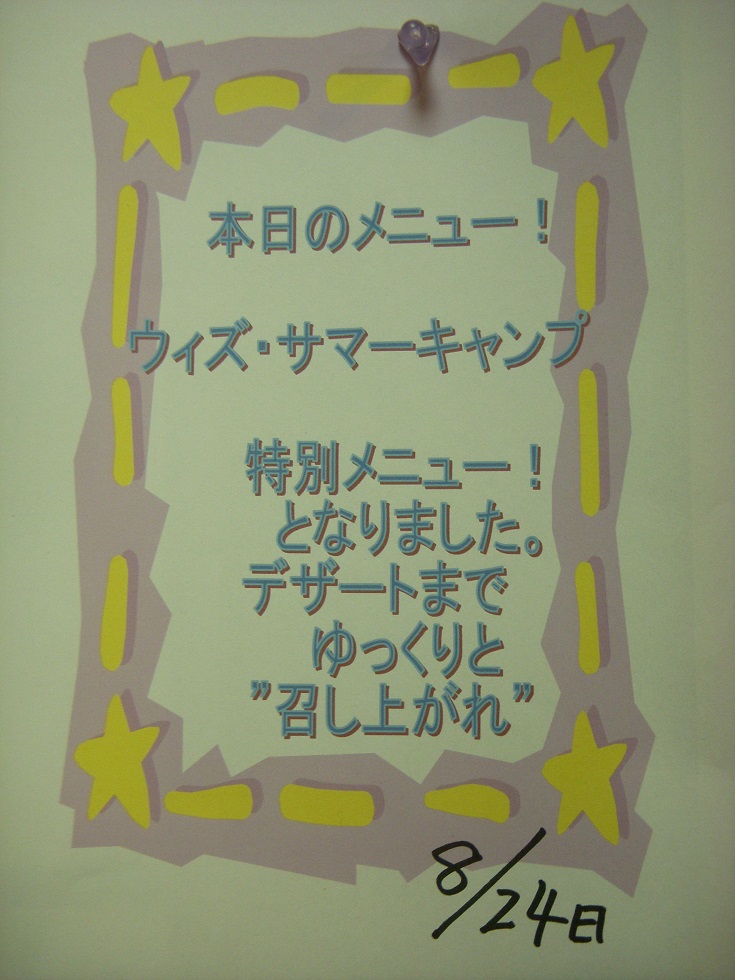 本日のメニュー！
ウィズ・サマーキャンプ
特別メニュー！
となりました。
デザートまで
ゆっくりと
”召し上がれ”
8/24日